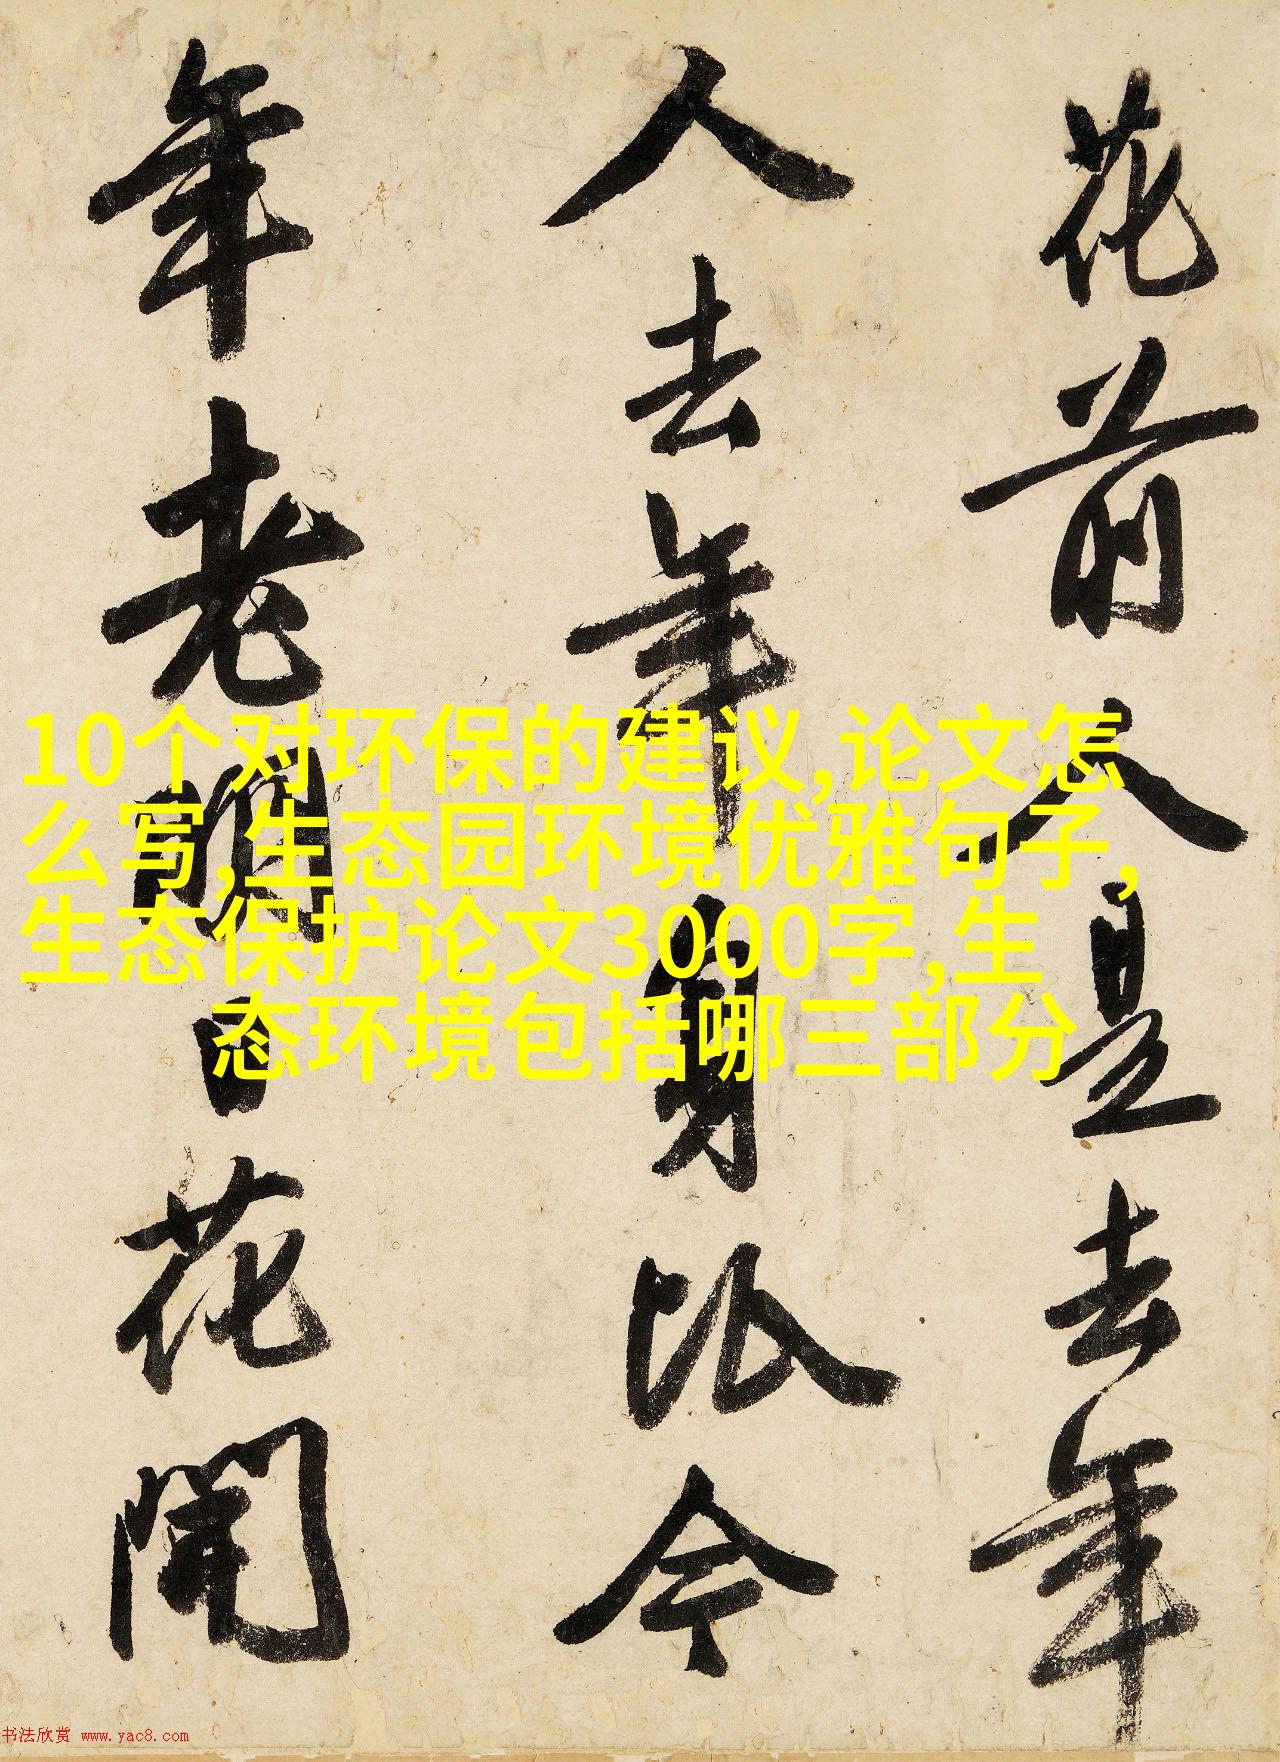 花前人是去年
人去年身比今
年老明日花開
10个对环保的建议,论文怎
么写,生态园环境优雅句子,
生态保护论文3000字,生
态环境包括哪三部分
书法欣赏 www.yac8.com